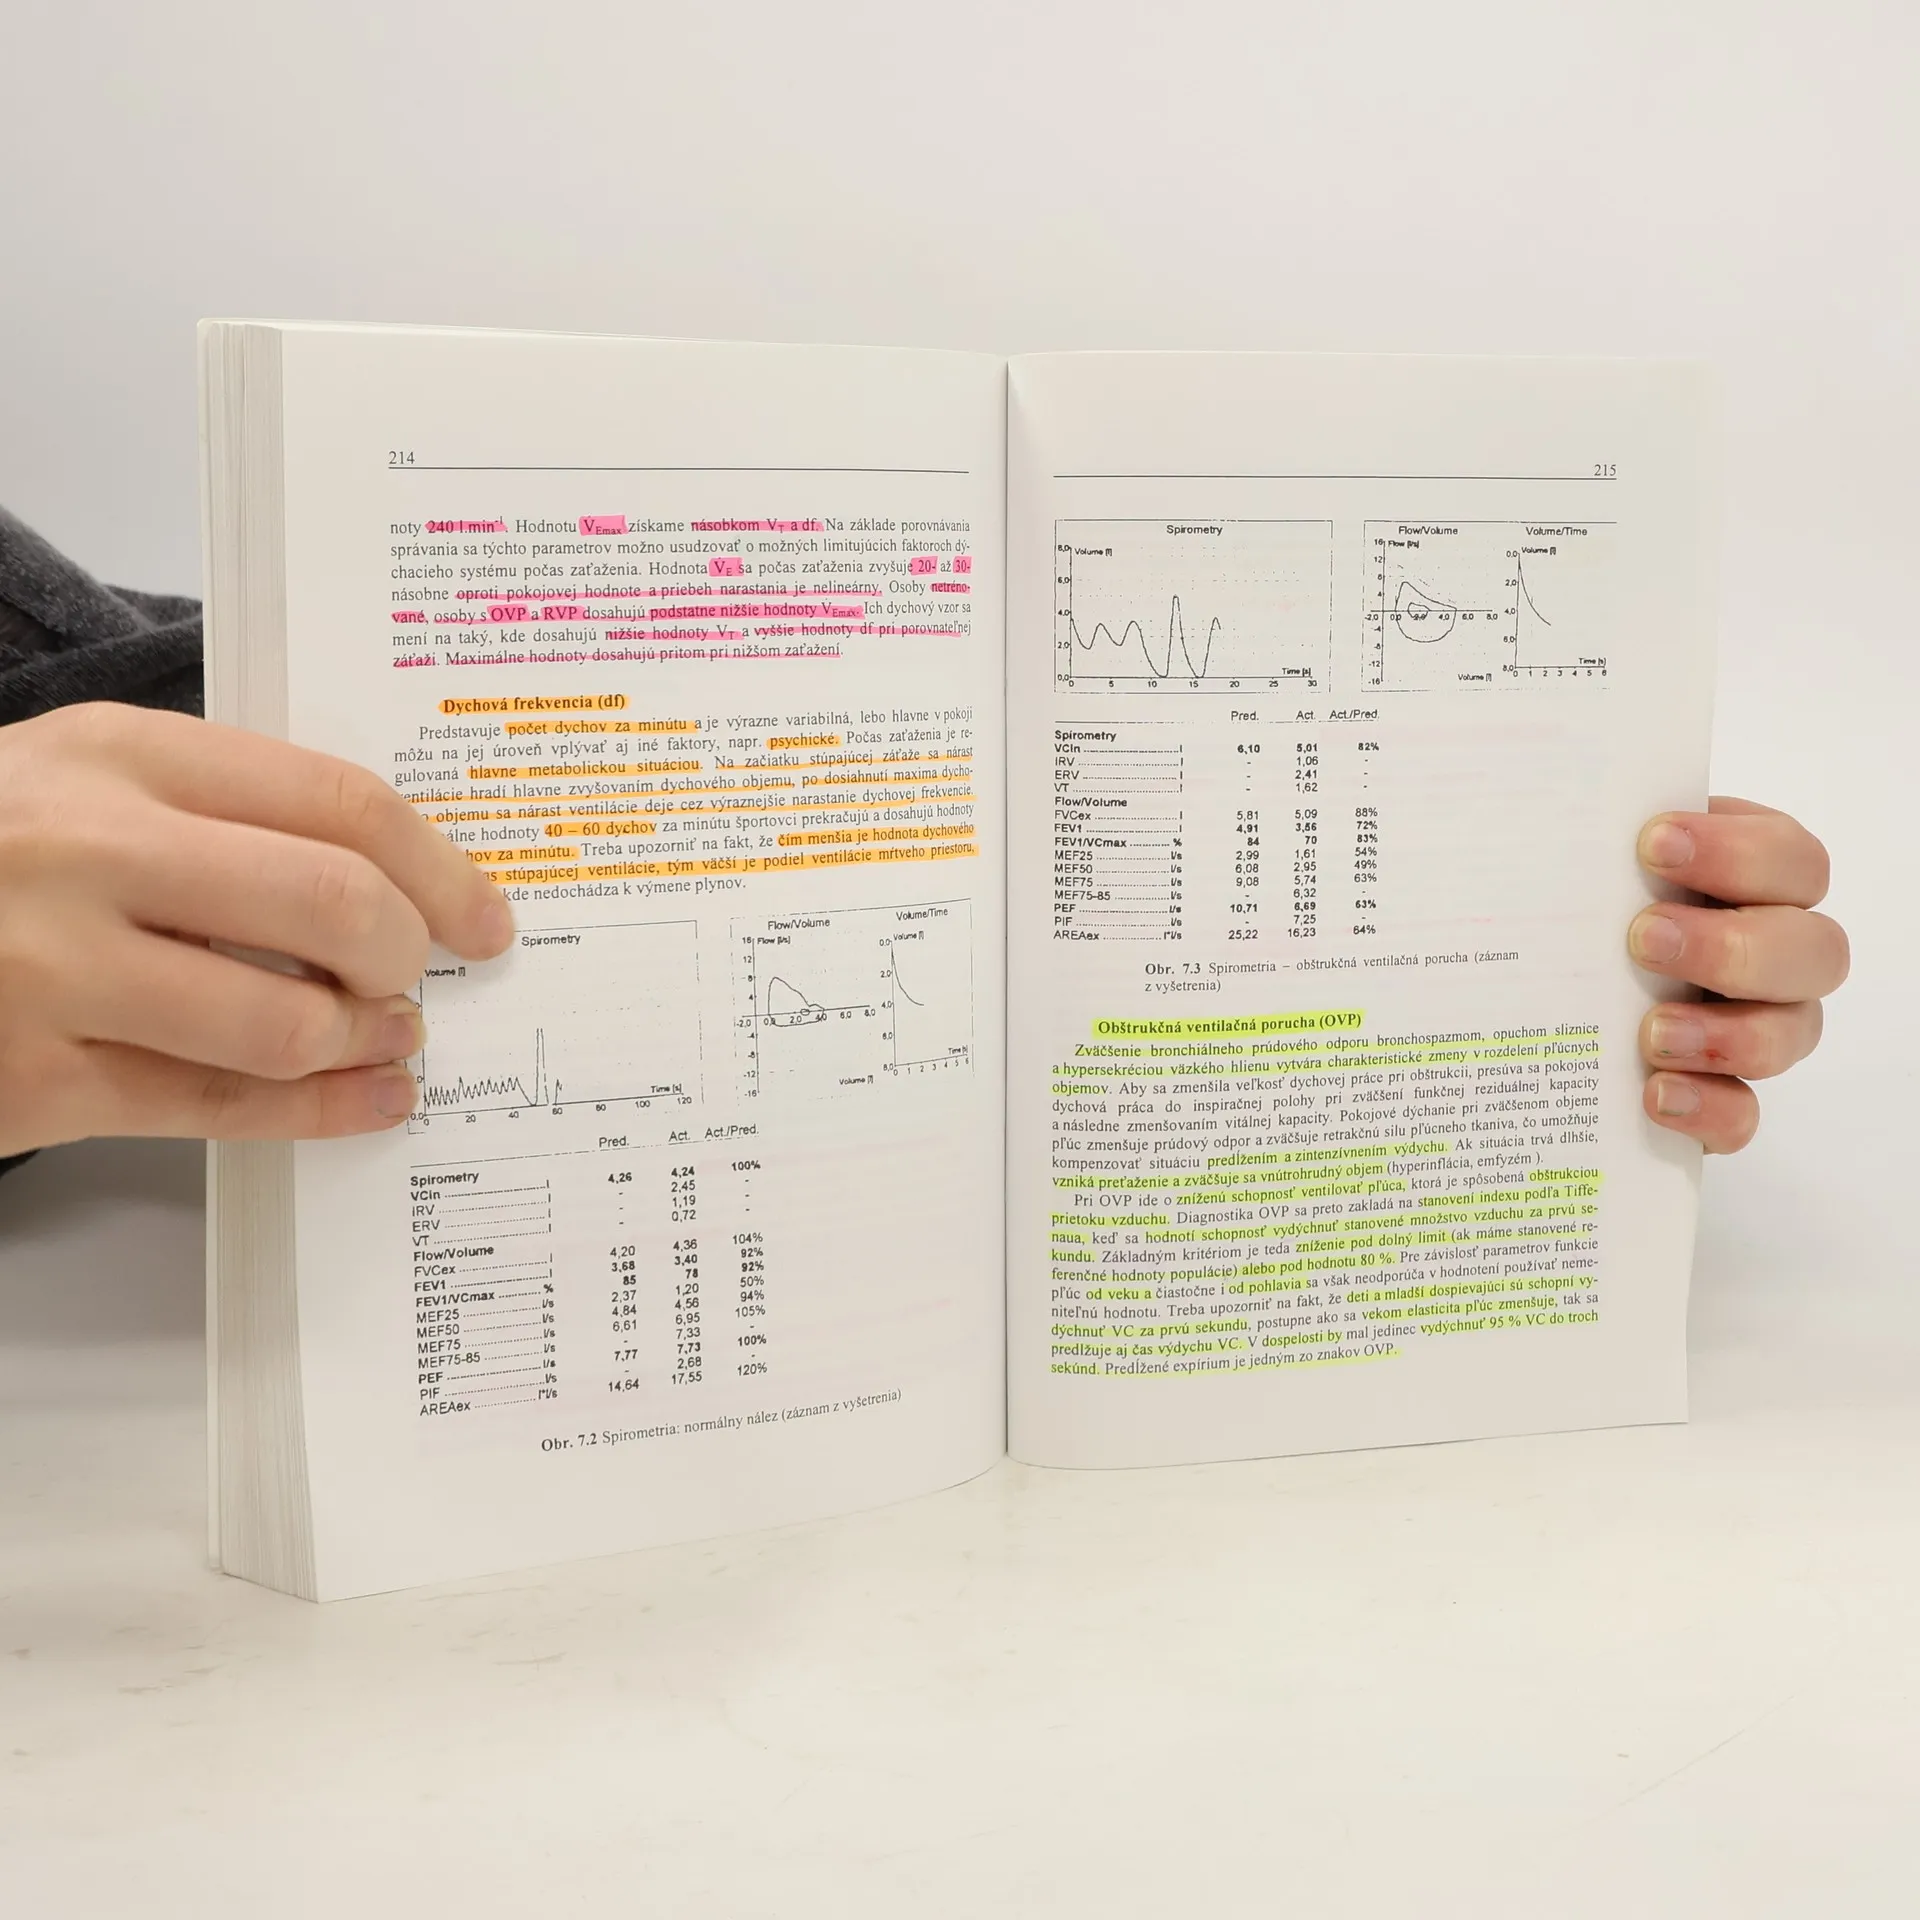 214
noty 240 l.min⁻¹. Hodnotu V̇Emax získame násobkom VT a df. Na základe porovnávania
správania sa týchto parametrov možno usudzovať o možných limitujúcich faktoroch dý-
chacieho systému počas zaťaženia. Hodnota V̇E sa počas zaťaženia zvyšuje 20- až 30-
násobne oproti pokojovej hodnote a priebeh narastania je nelineárny. Osoby netréno-
vané, osoby s OVP a RVP dosahujú podstatne nižšie hodnoty V̇Emax. Ich dychový vzor sa
mení na taký, kde dosahujú nižšie hodnoty VT a vyššie hodnoty df pri porovnateľnej
záťaži. Maximálne hodnoty dosahujú pritom pri nižšom zaťažení.
Dychová frekvencia (df)
Predstavuje počet dychov za minútu a je výrazne variabilná, lebo hlavne v pokoji
môžu na jej úroveň vplývať aj iné faktory, napr. psychické. Počas zaťaženia je re-
gulovaná hlavne metabolickou situáciou. Na začiatku stúpajúcej záťaže sa nárast
entilácie hradí hlavne zvyšovaním dychového objemu, po dosiahnutí maxima dycho-
objemu sa nárast ventilácie deje cez výraznejšie narastanie dychovej frekvencie.
álne hodnoty 40 – 60 dychov za minútu športovci prekračujú a dosahujú hodnoty
hov za minútu. Treba upozorniť na fakt, že čím menšia je hodnota dychového
as stúpajúcej ventilácie, tým väčší je podiel ventilácie mŕtveho priestoru,
kde nedochádza k výmene plynov.
Spirometry
Volume [l]
0,0
0 20 40 60 80 100 120
Time [s]
Flow/Volume
16 Flow [l/s]
12
8
4
-2,0 0,0 2,0 4,0 6,0 8,0
-4
-8
-12
-16
Volume [l]
Volume/Time
0,0 Volume [l]
2,0
4,0
6,0
8,0
0 1 2 3 4 5 6
Time [s]
Pred. Act. Act./Pred.
Spirometry
VCin ..... l 4,26 4,24 100%
IRV ..... l - 2,45 -
ERV ..... l - 1,19 -
VT ..... l - 0,72 -
Flow/Volume
FVCex ..... l 4,20 4,36 104%
FEV1 ..... l 3,68 3,40 92%
FEV1/VCmax ..... % 85 78 92%
MEF25 ..... l/s 2,37 1,20 50%
MEF50 ..... l/s 4,84 4,56 94%
MEF75 ..... l/s 6,61 6,95 105%
MEF75-85 ..... l/s - 7,33 -
PEF ..... l/s 7,77 7,73 100%
PIF ..... l/s - 2,68 -
AREAex ..... l*l/s 14,64 17,55 120%
Obr. 7.2 Spirometria: normálny nález (záznam z vyšetrenia)
215
Spirometry
8,0 Volume [l]
6,0
4,0
2,0
0,0
0 5 10 15 20 25 30
Time [s]
Flow/Volume
16 Flow [l/s]
12
8
4
-2,0 0,0 2,0 4,0 6,0 8,0
-4
-8
-12
-16
Volume [l]
Volume/Time
0,0 Volume [l]
2,0
4,0
6,0
8,0
0 1 2 3 4 5 6
Time [s]
Pred. Act. Act./Pred.
Spirometry
VCin ..... l 6,10 5,01 82%
IRV ..... l - 1,06 -
ERV ..... l - 2,41 -
VT ..... l - 1,62 -
Flow/Volume
FVCex ..... l 5,81 5,09 88%
FEV1 ..... l 4,91 3,56 72%
FEV1/VCmax ..... % 84 70 83%
MEF25 ..... l/s 2,99 1,61 54%
MEF50 ..... l/s 6,08 2,95 49%
MEF75 ..... l/s 9,08 5,74 63%
MEF75-85 ..... l/s - 6,32 -
PEF ..... l/s 10,71 6,69 63%
PIF ..... l/s - 7,25 -
AREAex ..... l*l/s 25,22 16,23 64%
Obr. 7.3 Spirometria – obštrukčná ventilačná porucha (záznam
z vyšetrenia)
Obštrukčná ventilačná porucha (OVP)
Zväčšenie bronchiálneho prúdového odporu bronchospazmom, opuchom sliznice
a hypersekréciou väzkého hlienu vytvára charakteristické zmeny v rozdelení pľúcnych
objemov. Aby sa zmenšila veľkosť dychovej práce pri obštrukcii, presúva sa pokojová
dychová práca do inspiračnej polohy pri zväčšení funkčnej reziduálnej kapacity
a následne zmenšovaním vitálnej kapacity. Pokojové dýchanie pri zväčšenom objeme
pľúc zmenšuje prúdový odpor a zväčšuje retrakčnú silu pľúcneho tkaniva, čo umožňuje
kompenzovať situáciu predĺžením a zintenzívnením výdychu. Ak situácia trvá dlhšie,
vzniká preťaženie a zväčšuje sa vnútrohrudný objem (hyperinflácia, emfyzém ).
Pri OVP ide o zníženú schopnosť ventilovať pľúca, ktorá je spôsobená obštrukciou
prietoku vzduchu. Diagnostika OVP sa preto zakladá na stanovení indexu podľa Tiffe-
naua, keď sa hodnotí schopnosť vydýchnuť stanovené množstvo vzduchu za prvú se-
kundu. Základným kritériom je teda zníženie pod dolný limit (ak máme stanovené re-
ferenčné hodnoty populácie) alebo pod hodnotu 80 %. Pre závislosť parametrov funkcie
pľúc od veku a čiastočne i od pohlavia sa však neodporúča v hodnotení používať neme-
niteľnú hodnotu. Treba upozorniť na fakt, že deti a mladší dospievajúci sú schopní vy-
dýchnuť VC za prvú sekundu, postupne ako sa vekom elasticita pľúc zmenšuje, tak sa
predlžuje aj čas výdychu VC. V dospelosti by mal jedinec vydýchnuť 95 % VC do troch
sekúnd. Predĺžené expírium je jedným zo znakov OVP.